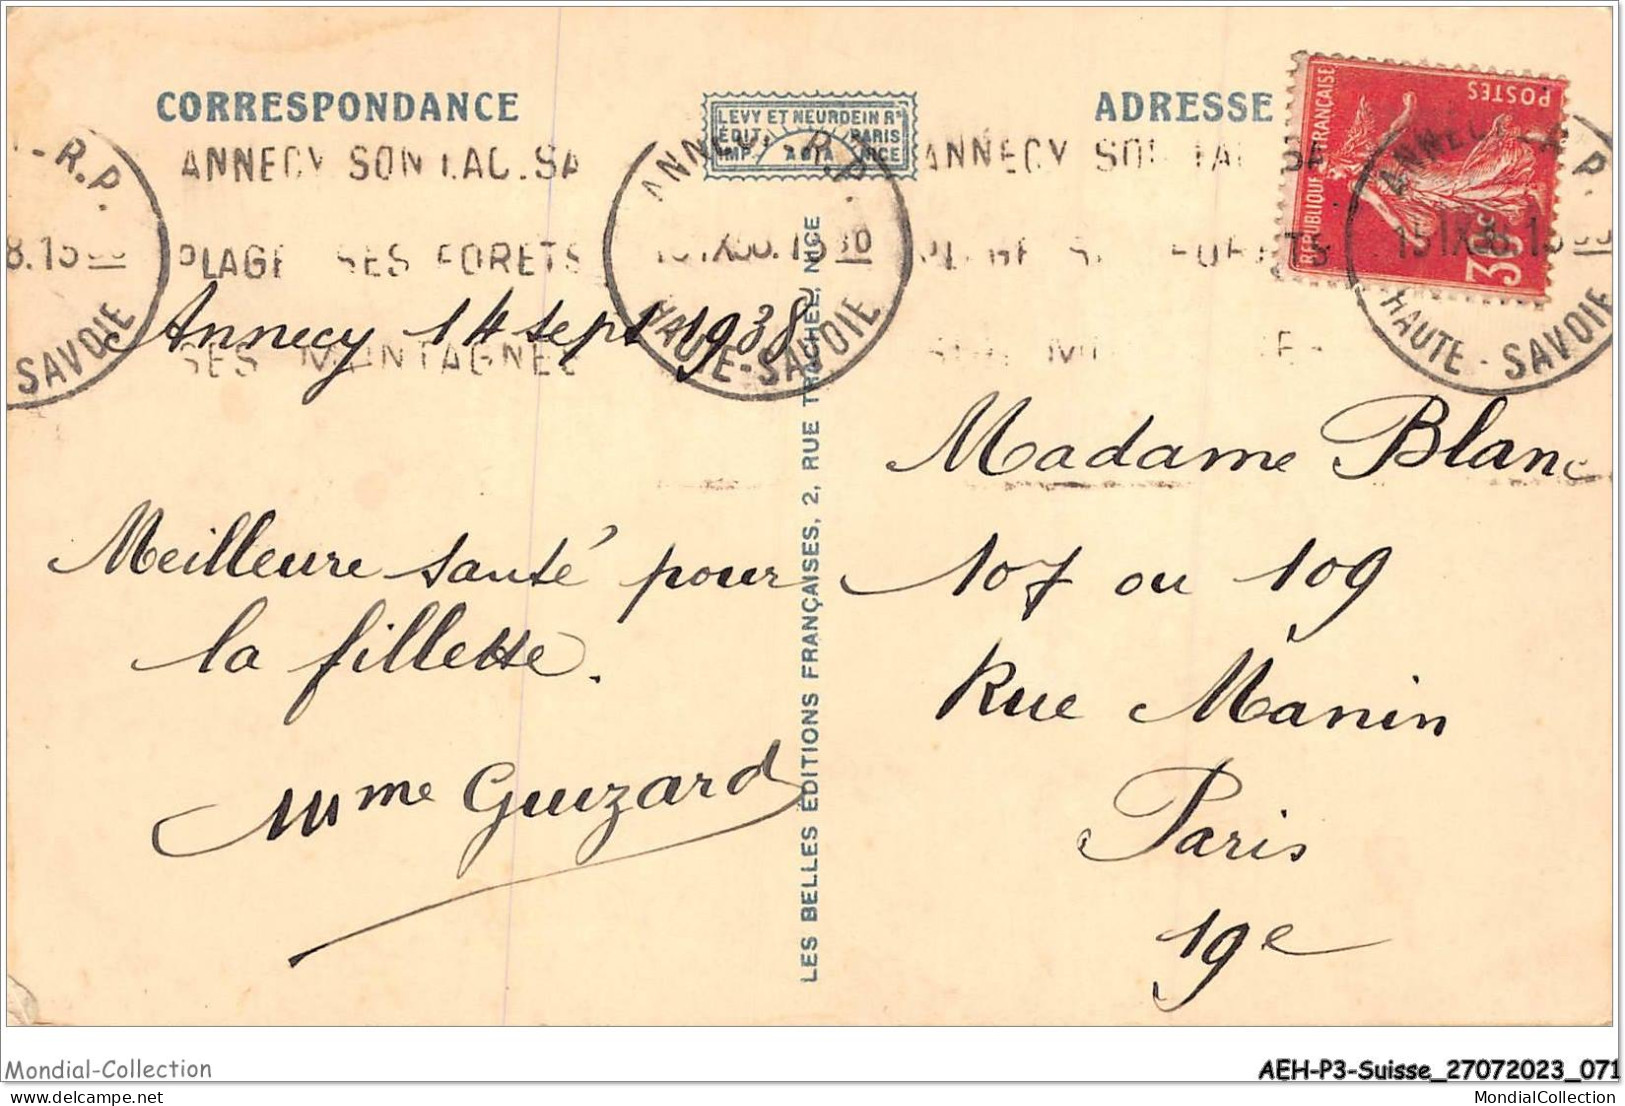 CORRESPONDANCE
LEVY ET NEURDEIN Rs
ÉDIT. PARIS
IMP. NICE
ADRESSE
RÉPUBLIQUE FRANÇAISE
POSTES
30c
- R.P.
SAVOIE
ANNECY SON LAC.SA
PLAGE SES FORETS
SES MONTAGNES
ANNECY R.P.
HAUTE-SAVOIE
ANNECY SON LAC SA
ANNECY R.P.
15 IX 38. 15 30
HAUTE-SAVOIE
Annecy 14 sept 1938
Meilleure santé pour
la fillette.
Mme Guizard
LES BELLES ÉDITIONS FRANÇAISES, 2, RUE TRACHEL, NICE
Madame Blanc
107 ou 109
Rue Manin
Paris
19e
Mondial-Collection
AEH-P3-Suisse_27072023_071
MondialCollection